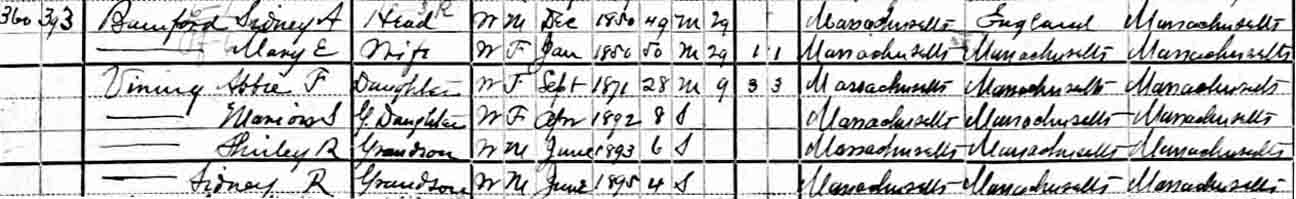 360 393 Bamford Sidney A Head W M Dec 1850 49 M 29 Massachusetts England Massachusetts
—— Mary E Wife W F Jan 1850 50 M 29 1 1 Massachusetts Massachusetts Massachusetts
Vining Abbie F Daughter W F Sept 1871 28 M 9 3 3 Massachusetts Massachusetts Massachusetts
—— Marion S G. Daughter W F Apr 1892 8 S Massachusetts Massachusetts Massachusetts
—— Shirley R Grandson W M June 1893 6 S Massachusetts Massachusetts Massachusetts
—— Sidney R Grandson W M June 1895 4 S Massachusetts Massachusetts Massachusetts